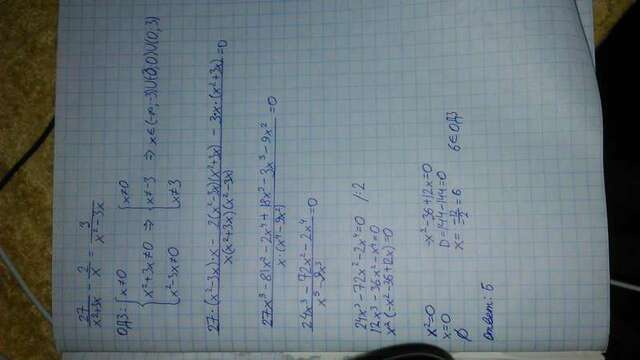 27/(x²+3x) - 2/x = 3/(x²-3x)
ОДЗ: { x≠0 { x²+3x≠0 { x²-3x≠0 ⇒ { x≠0 { x≠-3 { x≠3 ⇒ x∈(-∞,-3)∪(-3,0)∪(0,3)
(27·(x²-3x)x - 2(x²-3x)(x²+3x) - 3x·(x²+3x))/(x(x²+3x)(x²-3x)) = 0
(27x³-81x²-2x⁴+18x²-3x³-9x²)/(x·(x⁴-9x²)) = 0
(24x³-72x²-2x⁴)/(x⁵-9x³) = 0
24x³-72x²-2x⁴=0 /:2
12x³-36x²-x⁴=0
x²(-x²-36+12x)=0
x²=0 -x²-36+12x=0
x=0 D=144-144=0
∅ x= -12/-2 =6 6∈ОДЗ
Ответ: 6